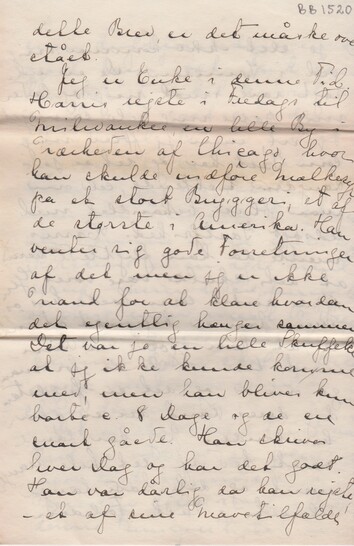 BB1520
dette Brev, er det måske ove
stået.
Jeg er Enke i denne Tid,
Harris rejste i Fredags til
Milwaukie en lille By i
Nærheden af Chicago, hvor
han skulde indføre
på et stort Byggeri, et af
de største i Amerika. Han
venter sig gode Forretninger
af det, men jeg er ikke
Mand for at klare hvordan
det egentlig hænger sammen
Det var jo en lille Skuffelse
at jeg ikke kunde komme
med, men han bliver kun
borte c 8 Dage og de er
snart gåede. Han skriver
hver Dag og har det godt.
Han var dårlig da han rejste
- et af sine Mavetilfælde